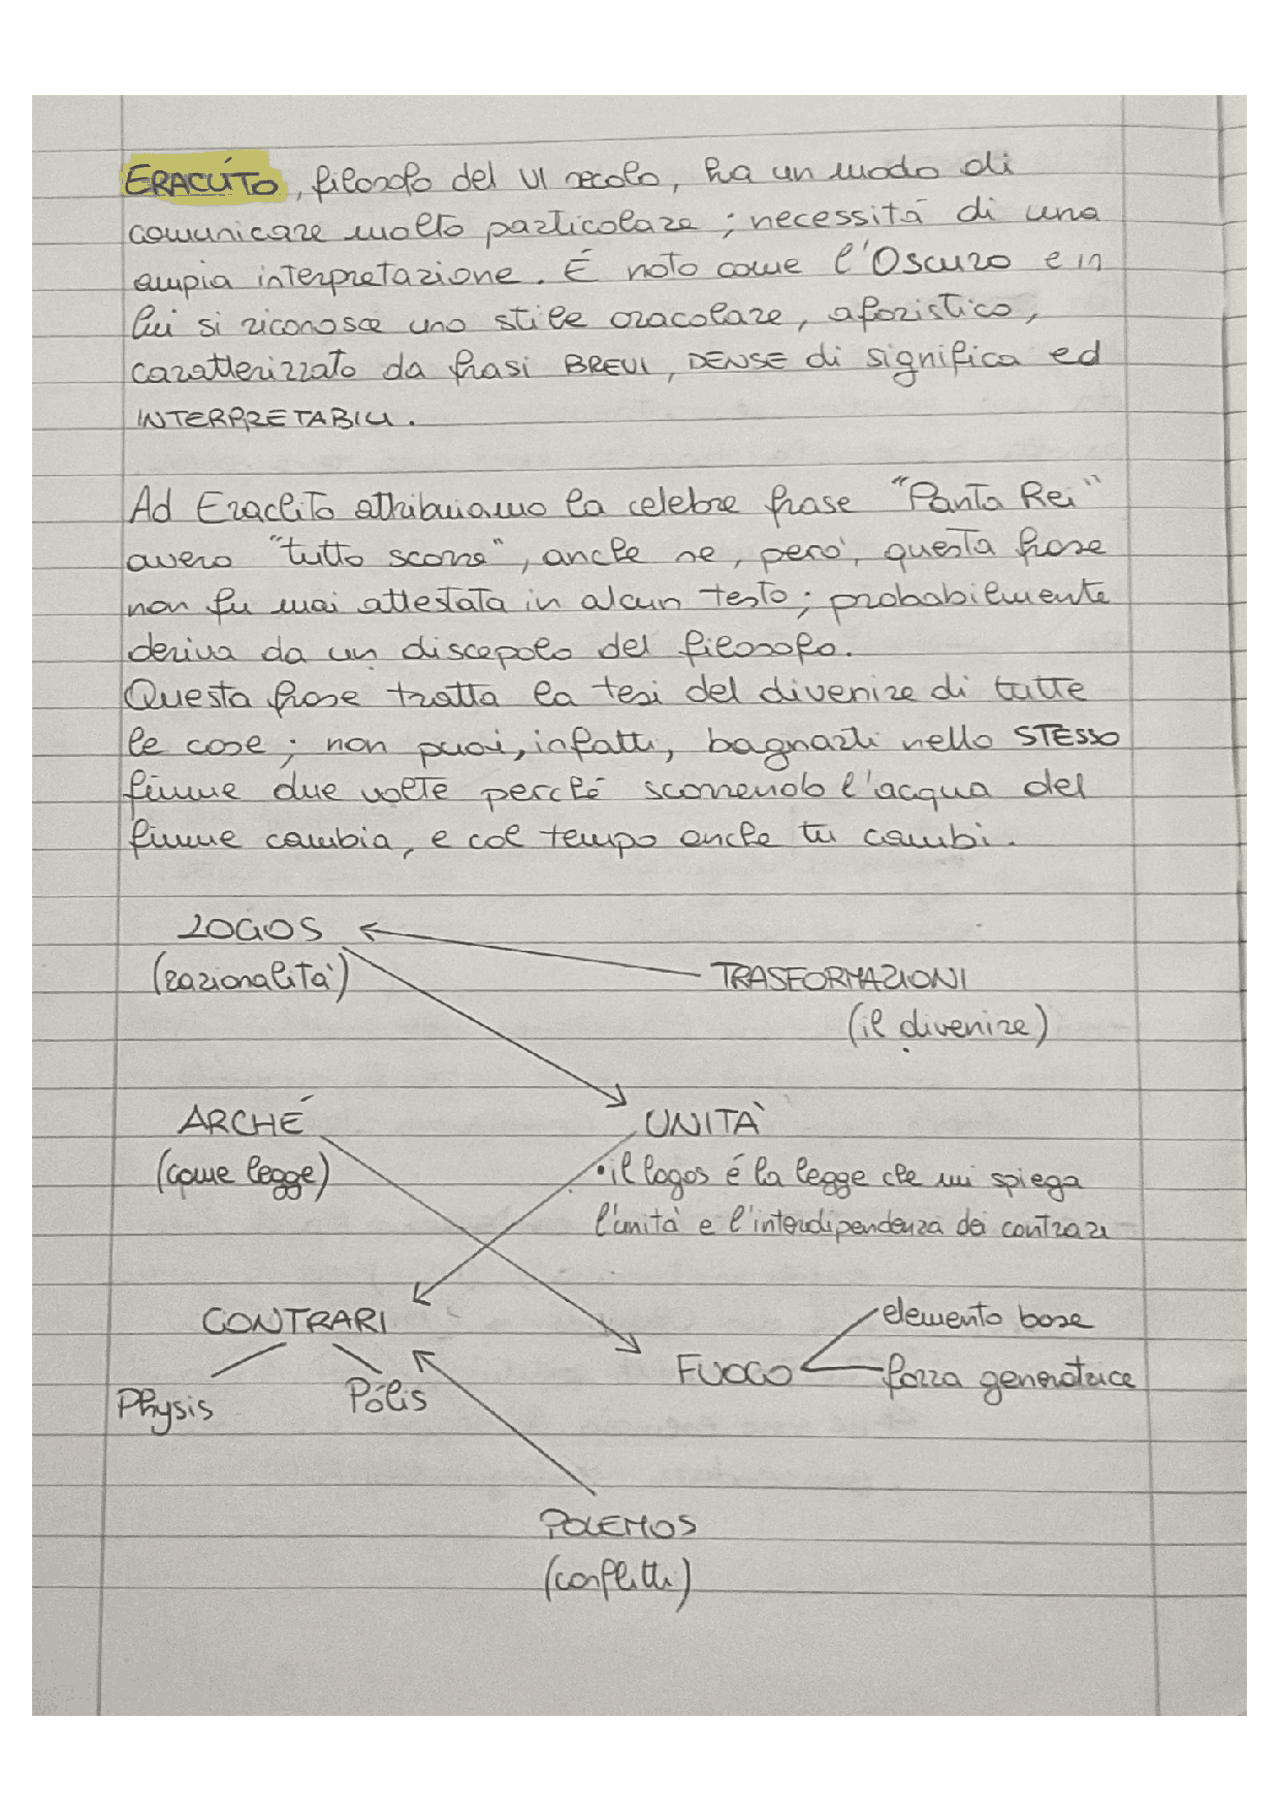 ERACLITO, filosofo del VI secolo, ha un modo di
comunicare molto particolare; necessitá di una
ampia interpretazione. É noto come l'Oscuro e in
lui si riconosce uno stile oracolare, aforistico,
caratterizzato da frasi BREVI, DENSE di significa ed
INTERPRETABILI.
Ad Eraclito attribuiamo la celebre frase "Panta Rei"
ovvero "tutto scorre", anche se, però, questa frase
non fu mai attestata in alcun testo; probabilmente
deriva da un discepolo del filosofo.
Questa frase tratta la tesi del divenire di tutte
le cose; non puoi, infatti, bagnarti nello STESSO
fiume due volte perché scorrendo l'acqua del
fiume cambia, e col tempo anche tu cambi.
LOGOS
(razionalità)
TRASFORMAZIONI
(il divenire)
ARCHÉ
(come legge)
UNITÀ
• il logos é la legge che mi spiega
l'unità e l'interdipendenza dei contrari
CONTRARI
Physis
Pólis
FUOCO
elemento base
forza generatrice
POLEMOS
(conflitti)